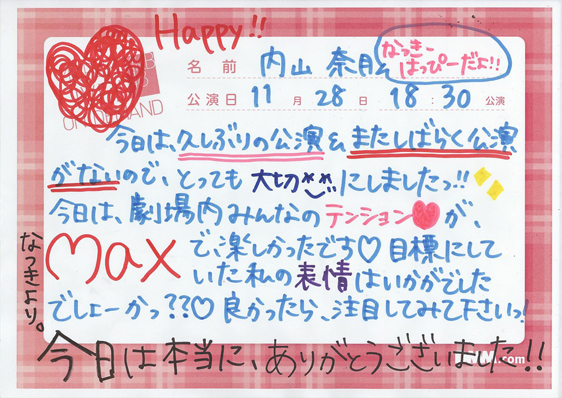 Happy!!
名前 内山 奈月
なっきー
はっぴーだよ!!
公演日 11月28日 18:30公演
今日は、久しぶりの公演&またしばらく公演
がないので、とっても大切にしましたっ!!
今日は、劇場内みんなのテンション♥が、
Maxで、楽しかったです♡目標にして
いた私の表情はいかがでした
でしょーかっ??♡良かったら、注目してみて下さいっ!
なつきより。
今日は本当に、ありがとうございました!!
.com